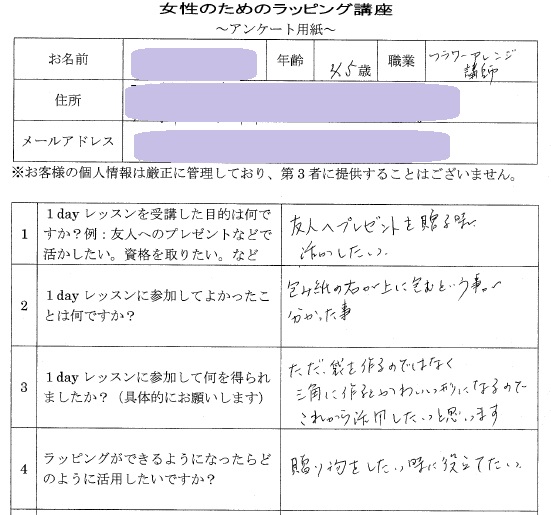 女性のためのラッピング講座
～アンケート用紙～
お名前
年齢
45歳
職業
フラワーアレンジ
講師
住所
メールアドレス
※お客様の個人情報は厳正に管理しており、第3者に提供することはございません。
1
1dayレッスンを受講した目的は何で
すか?例:友人へのプレゼントなどで
活かしたい。資格を取りたい。など
友人へプレゼントを贈る時に
活かしたい。
2
1dayレッスンに参加してよかったこ
とは何ですか?
包み紙の右が上に包むという事が
分かった事
3
1dayレッスンに参加して何を得られ
ましたか?(具体的にお願いします)
ただ、袋を作るのではなく
三角に作るとかわいい形になるので
これから活用したいと思います
4
ラッピングができるようになったらど
のように活用したいですか?
贈り物をしたい時に役立てたい。